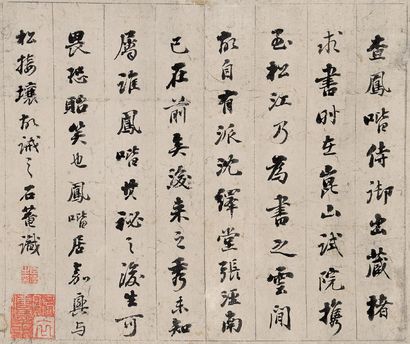 查鳳喈侍御出藏楮
求書時在崑山試院攜
至松江乃為書之雲間
故自有派沈繹堂張涇南
已在前矣後來之秀未知
屬誰鳳喈其秘之後生可
畏恐貽笑也鳳喈居嘉興与
松接壤故誡之石菴識